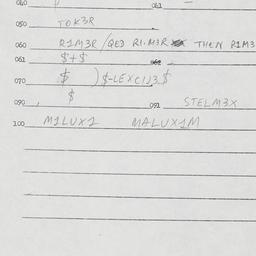 040 041
050 TOK3R
060 R1M3R / QED R1.M3R THEN R1M3
061 $+$ 062 -
070 $ ) $-LEXC1J3.$
$
090 091 STELM3X
100 M1LUX1 MALUX1M